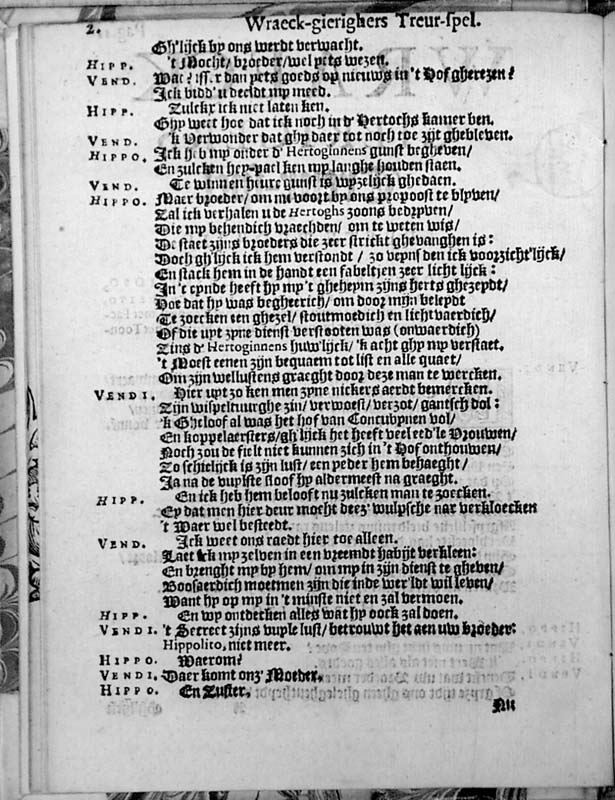 2. Wraeck-gierighers Treur-spel.
Gh'lijck by ons werdt verwacht.
HIPP. 't Mocht/ broeder/ wel yets wezen.
VEND. Wat? isser dan yets goeds op nieuws in 't Hof gherezen?
Ick bidd' u deeldt my meed.
HIPP. Zulckx ick niet laten ken.
Ghy weet hoe dat ick noch in d' Hertochs kamer ben.
VEND. 'k Verwonder dat ghy daer tot noch toe zijt ghebleven.
HIPPO. Ick heb my onder d' Hertoginnens gunst begheven/
En zulcken hey-pael ken my langhe houden staen.
VEND. Te winnen heure gunst is wyzelijck ghedaen.
HIPPO. Maer broeder/ om nu voort by ons propoost te blyven/
Zal ick verhalen u de Hertoghs zoons bedryven/
Die my behendich vraechden/ om te weten wis/
Of staet zijns broeders die zeer strickt ghevanghen is:
Doch gh'lijck ick hem verstondt / zo veynsden ick voorzicht'lijck/
En stack hem in de handt een fabeltjen zeer licht'lijck:
In 't eynde heeft hy my 't gheheym zijns herts ghezeydt/
Hoe dat hy was begheerich/ om door mijn beleydt
Te zoecken een ghezel/ stoutmoedich en lichtvaerdich/
Of die uyt zyne dienst verstooten was (onwaerdich)
Tins d' Hertoginnens huw'lijck/ 'k acht ghy my verstaet.
't Moest eenen zijn bequaem tot list en alle quaet/
Om zijn wellustens graeght door deze man te wercken.
VENDI. Hier uyt zo ken men zyne nickers aerdt bemercken.
Zijn wispeltuurghe zin/ verwoest/ verzot/ gantsch dol:
'k Gheloof al was het hof van Concubynen vol/
En koppelaersters/ gh'lijck het heeft veel eed'le Vrouwen/
Noch zou de fielt niet kunnen zich in 't Hof onthouwen/
Zo schielijck is zijn lust/ een yeder hem behaeght/
Ja na de vuylste sloof hy aldermeest na graeght.
HIPP. En ick heb hem belooft nu zulcken man te zoecken.
Ey dat men hier deur mocht deez' wulpsche nar verkloecken
't Waer wel besteedt.
VEND. Ick weet ons raedt hier toe alleen.
Laet ick my zelven in een vreemdt habijt verkleen:
En brenght my by hem/ om my in zijn dienst te gheven/
Boosaerdich moet men zijn die in de wer'ldt wil leven/
Want hy op my in 't minste niet en zal vermoen.
HIPP. En wy ontdecken alles wat hy oock zal doen.
VENDI. 't Secreet zijns vuyle lust/ betrouwt het aen uw broeder:
Hippolito, niet meer.
HIPPO. Waerom?
VENDI. Daer komt onz' Moeder.
HIPPO. En Zuster.